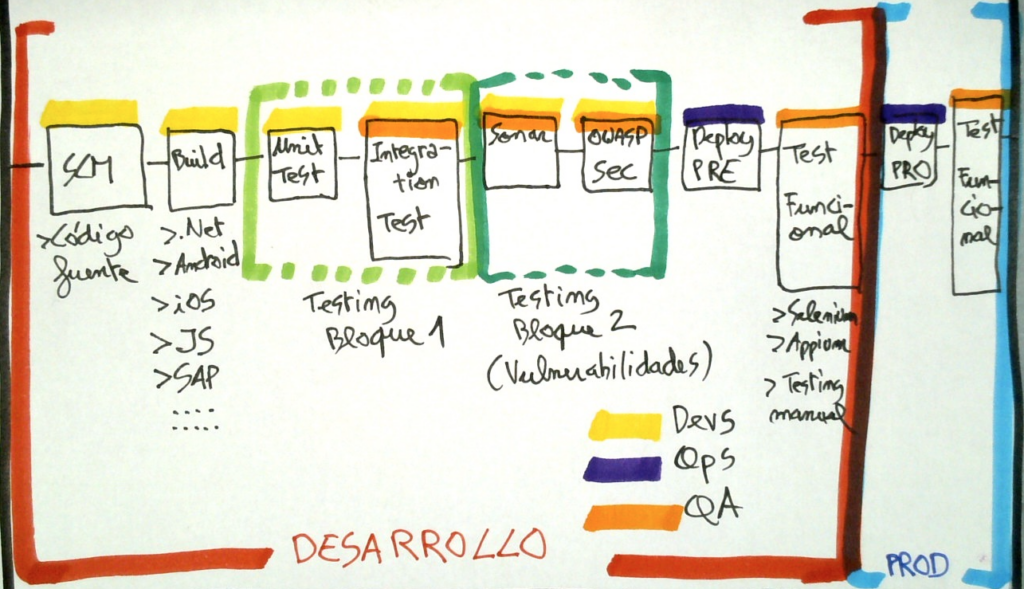 SCM
>Código
fuente
Build
>.Net
>Android
>iOS
>JS
>SAP
.....
.....
Unit
Test
Integra-
tion
Test
Testing
Bloque 1
Sonar
OWASP
Sec
Testing
Bloque 2
(Vulnerabilidades)
Deploy
PRE
Test
Funci-
onal
>Selenium
>Appium
>Testing
manual
Deploy
PRO
Test
Fun-
cio-
nal
Devs
Ops
QA
DESARROLLO
PROD